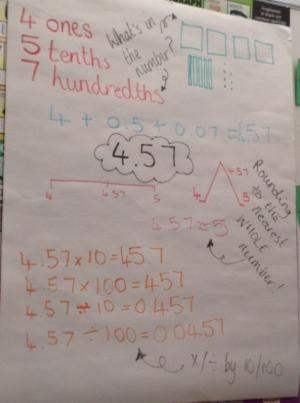 4 ones
5 tenths
7 hundredths
What's in
the
number?
4 + 0.5 + 0.07 = 4.57
4.57
4 4.57 5
4.57
4 5
Rounding
to the
nearest
WHOLE
number!
4.57 = 5
4.57 x 10 = 45.7
4.57 x 100 = 457
4.57 ÷ 10 = 0.457
4.57 ÷ 100 = 0.0457
x/÷ by 10/100